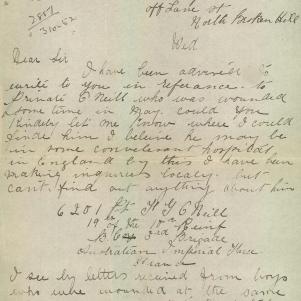 off Lane st
North Broken Hill
Wed
Dear Sir
I have been advised to
write to you in reference to
Private O Neill who was wounded
some time in May. could you
kindley let me know where I could
finde him I beleive he may be
in some convelesent hospital
in England by this I have been
making inquires localy. but
cant find out anything about him
6201 Pte O Neill
19 of the 10th Reinf
3rd Brigade
Australian Imperial Force
France
I see by letters received from boys
who were wounded at the same